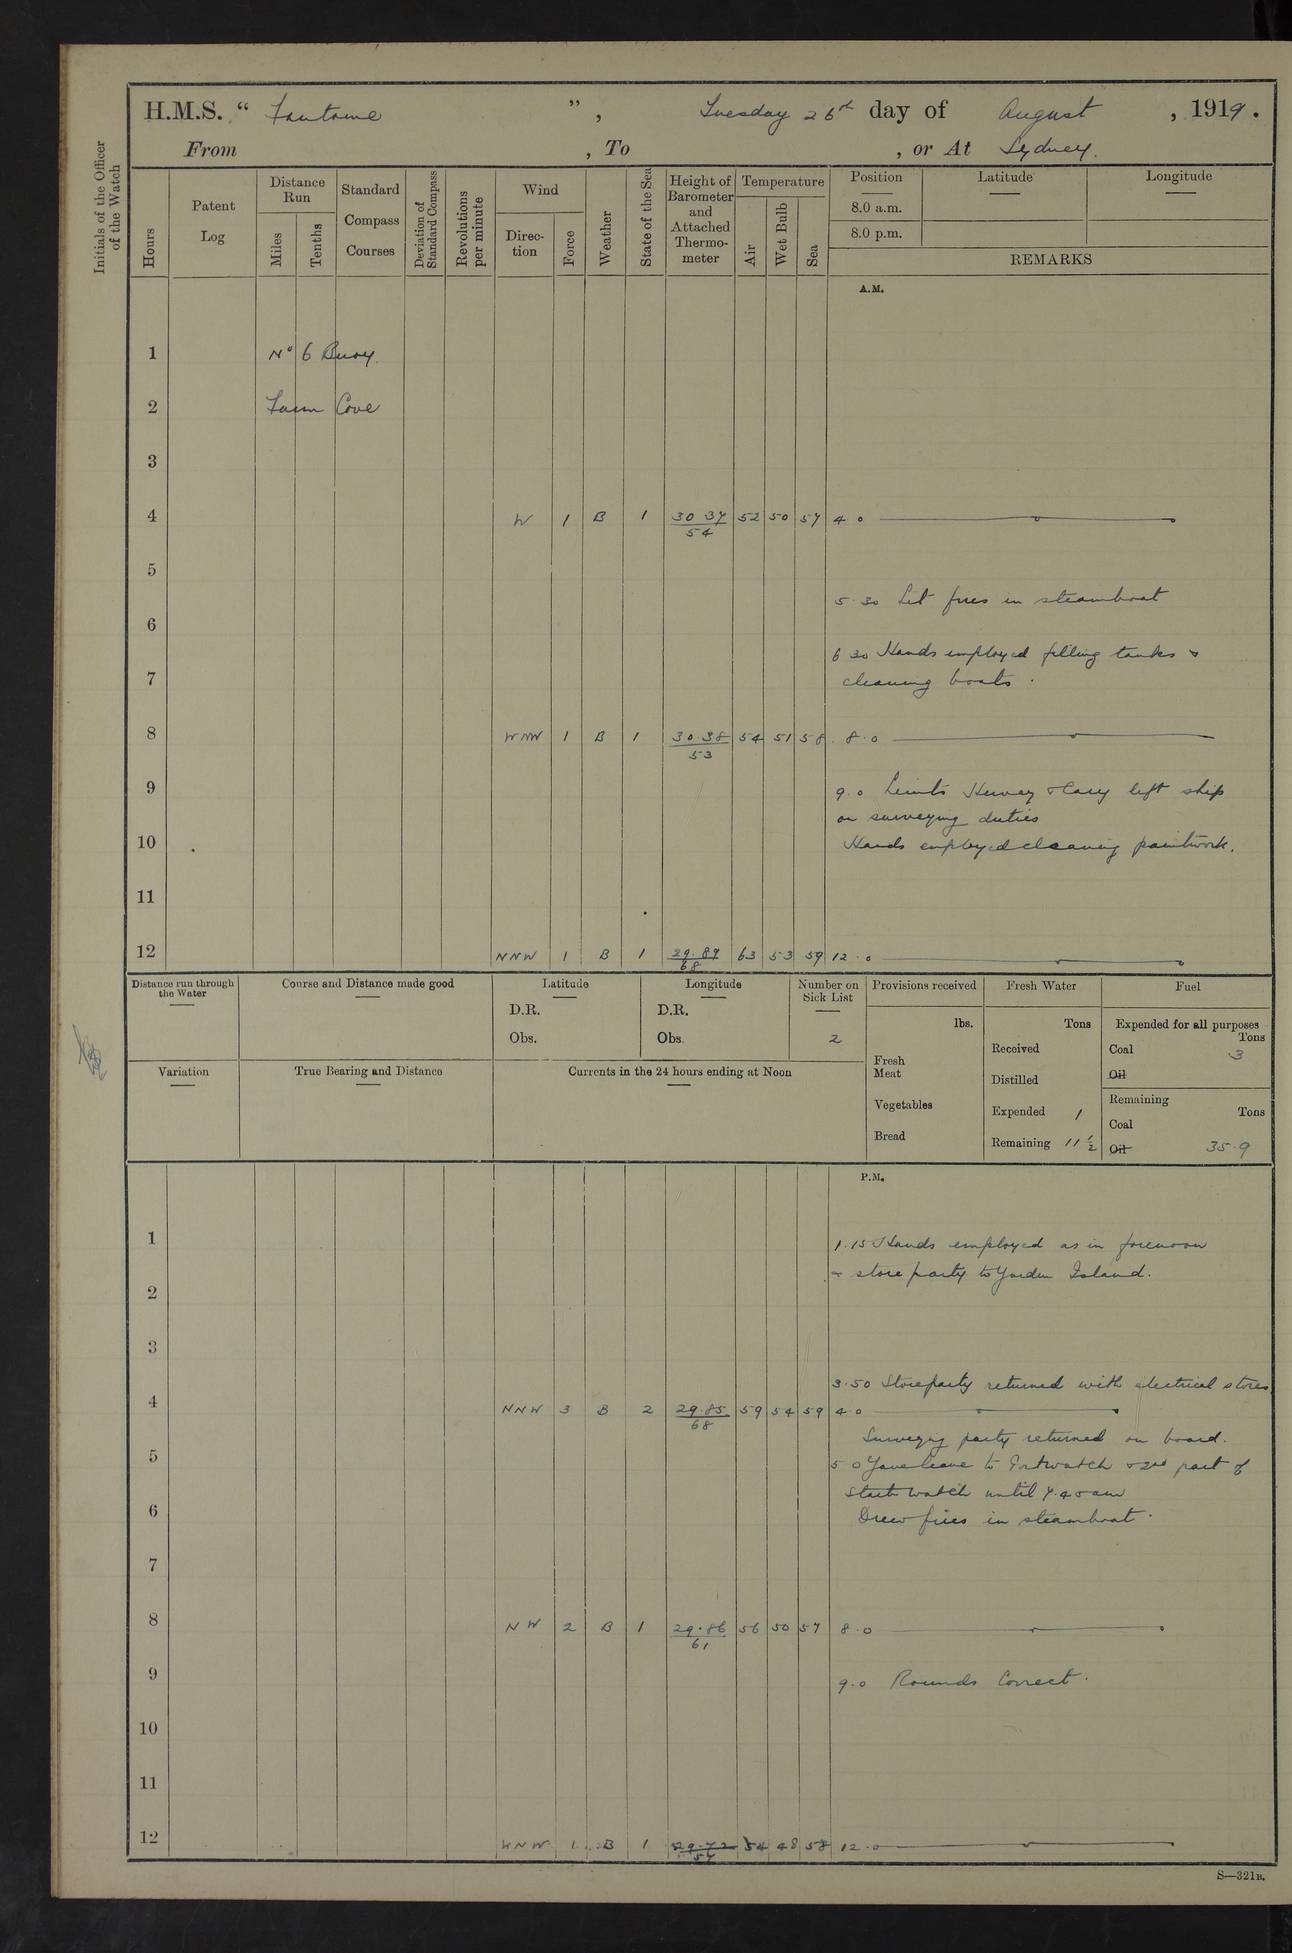 H.M.S. " Fantome ", Tuesday 26th day of August, 1919.
From , To , or At Sydney.
Initials of the Officer of the Watch
Hours
Patent Log
Distance Run
Miles
Tenths
Standard Compass Courses
Deviation of Standard Compass
Revolutions per minute
Wind
Direction
Force
Weather
State of the Sea
Height of Barometer and Attached Thermometer
Temperature
Air
Wet Bulb
Sea
Position Latitude Longitude
8.0 a.m.
8.0 p.m.
REMARKS
A.M.
1 No 6 Buoy.
2 Farm Cove
3
4 W 1 B 1 30 37 54 52 50 57 4 0
5
5.30 Lit fires in steamboat
6
6 30 Hands employed filling tanks &
7 cleaning boats.
8 WNW 1 B 1 30.38 53 54 51 58 8.0
9 9.0 Lieuts Hervey & Cary left ship
on surveying duties
10 Hands employed cleaning paintwork.
11
12 NNW 1 B 1 29.89 68 63 53 59 12.0
Distance run through the Water
Course and Distance made good
Latitude
D.R.
Obs.
Longitude
D.R.
Obs.
Number on Sick List
2
Provisions received
lbs.
Fresh Meat
Vegetables
Bread
Fresh Water
Tons
Received
Distilled
Expended 1
Remaining 11 1/2
Fuel
Expended for all purposes
Tons
Coal 3
Oil
Remaining
Tons
Coal
Oil 35.9
Variation
True Bearing and Distance
Currents in the 24 hours ending at Noon
P.M.
1 1.15 Hands employed as in forenoon
& store party to Garden Island.
2
3
3.50 Storeparty returned with electrical stores
4 NNW 3 B 2 29.85 68 59 54 59 4.0
Surveying party returned on board.
5 5 0 Gave leave to Port watch & 2nd part of
Starb watch until 7.40 am
6 Drew fires in steamboat.
7
8 NW 2 B 1 29.86 61 56 50 57 8.0
9 9.0 Rounds Correct.
10
11
12 WNW 1 B 1 29.72 57 54 48 58 12.0
S—321B.